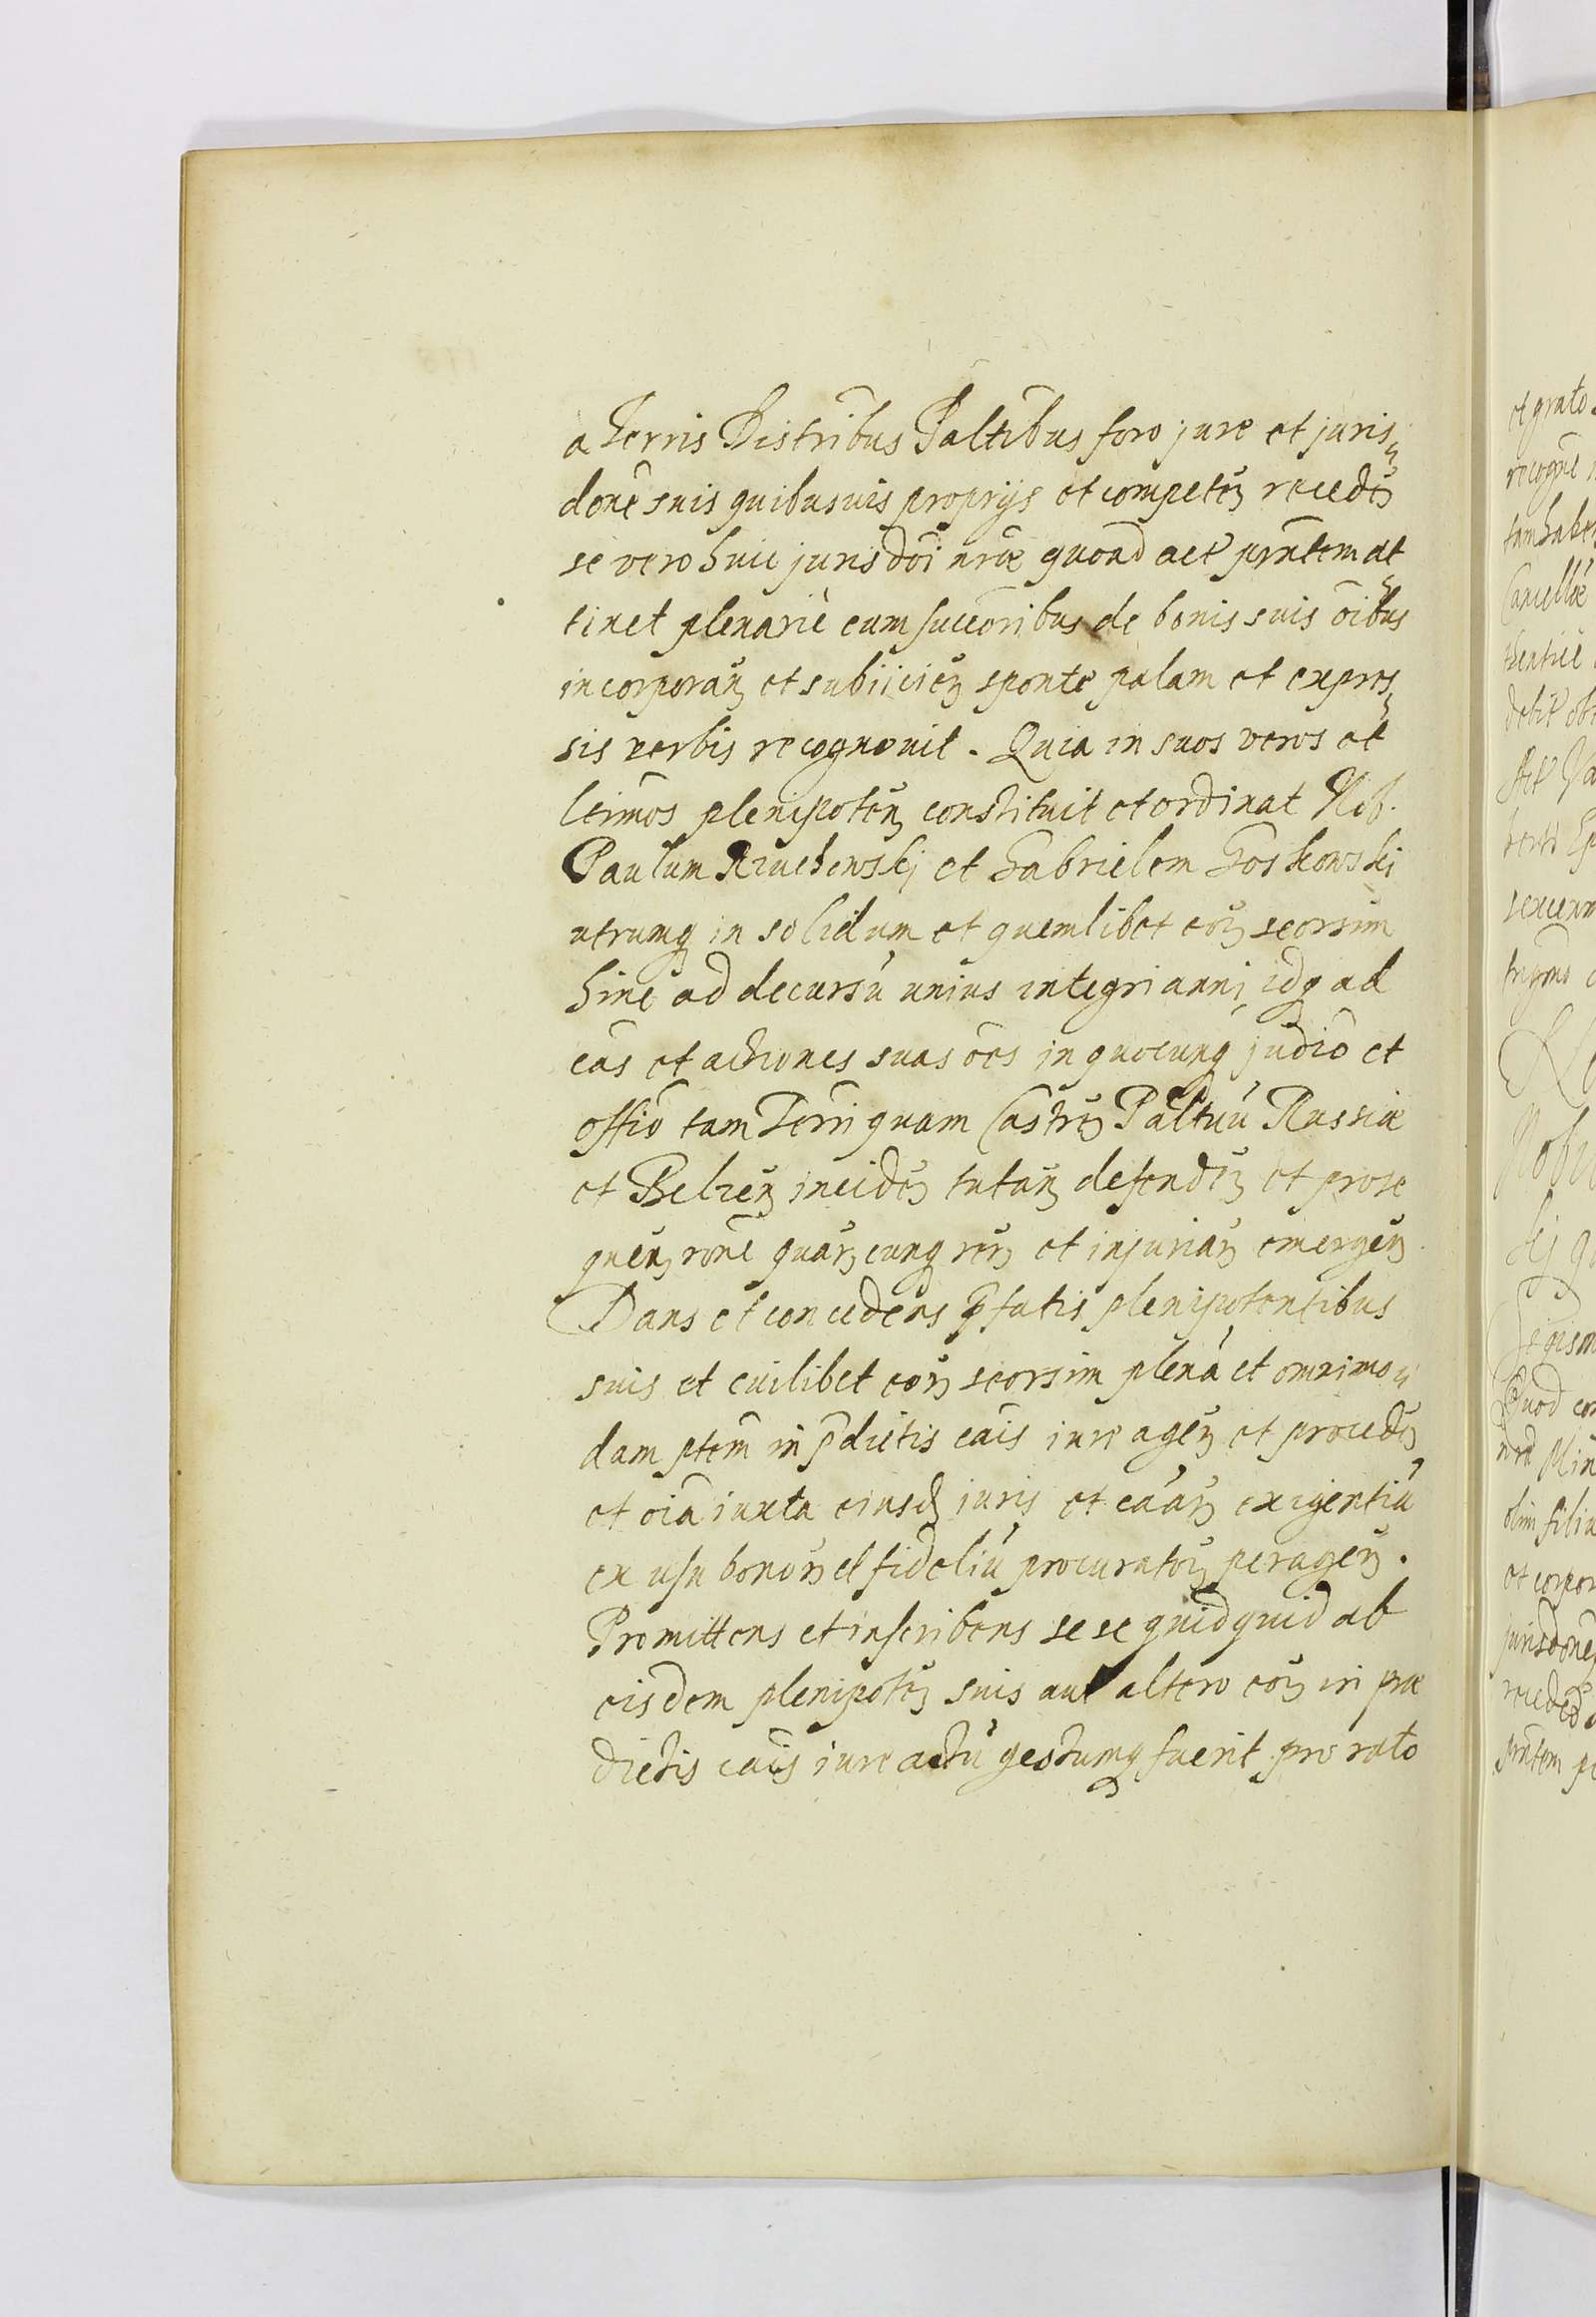 a Terris Distribus Paltibus foro jure et juris„
done suis quibusuis proprijs et competen recedens
se vero huic jurisdoi nræ quoad act prntem at
tinet plenarie cum succoribus de bonis suis oibus
incorporan et subiicien sponte palam et expres„
sis verbis recognovit. Quia in suos veros et
ltimos plenipoten constituit et ordinat Nob.
Paulum et Gabrielem Goskowskj
utrumq in solidum et quemlibet eor seorsim
hinc ad decursu unius integri anni idq ad
cas et actiones suas oes in quocunq judio et
offio tam Terri quam Castren Paltuu Russiæ
et Belzen inciden tutan defenden et prose
quen rone quarcunq rer et injuriar emergen
Dans et concedens pfatis plenipotentibus
suis et cuilibet eor seorsim plena et omnimo„
dam ptem in pdictis cais iure agen et proceden
et oia iuxta eiusd iuris et caar exigentiu
ex usu bonor et fideliu procurator peragen.
Promittens et inscribens sese quidquid ab
eisdem plenipoten suis aut altero eor in præ
dictis cais iure actu gestumq fuerit pro rato
et grato
recogne
tam habe
Cancellæ
thentice
debit

sexcen

Nob

Quod co

olim filiu
et corpor
jurisdone
reced
prntem p